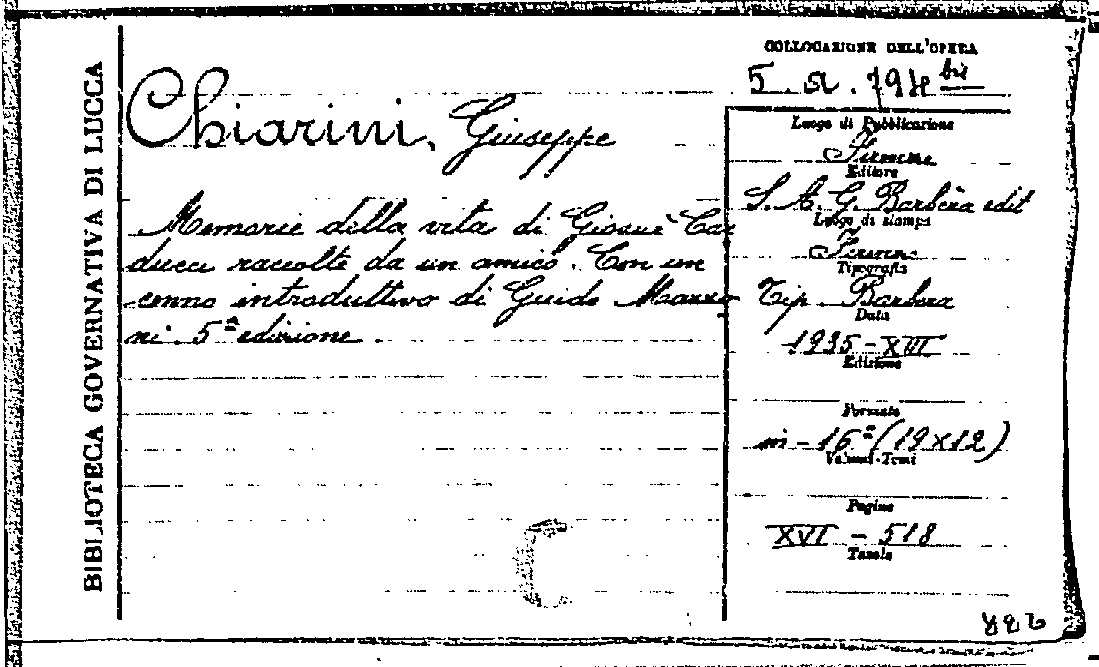 BIBLIOTECA GOVERNATIVA DI LUCCA
COLLOCAZIONE DELL'OPERA
5. a. 794 bis
Chiarini, Giuseppe
Memorie della vita di Giosuè Car
ducci raccolte da un amico. Con un
cenno introduttivo di Guido Mazzo
ni. 5ª edizione.
Luogo di Pubblicazione
Firenze
Editore
S. A. G. Barbèra edit
Luogo di stampa
Firenze
Tipografia
Tip. Barbèra
Data
1935-XIII
Edizione
Formato
in-16º (19x12)
Volumi-Tomi
Pagine
XVI - 518
Tavole
C